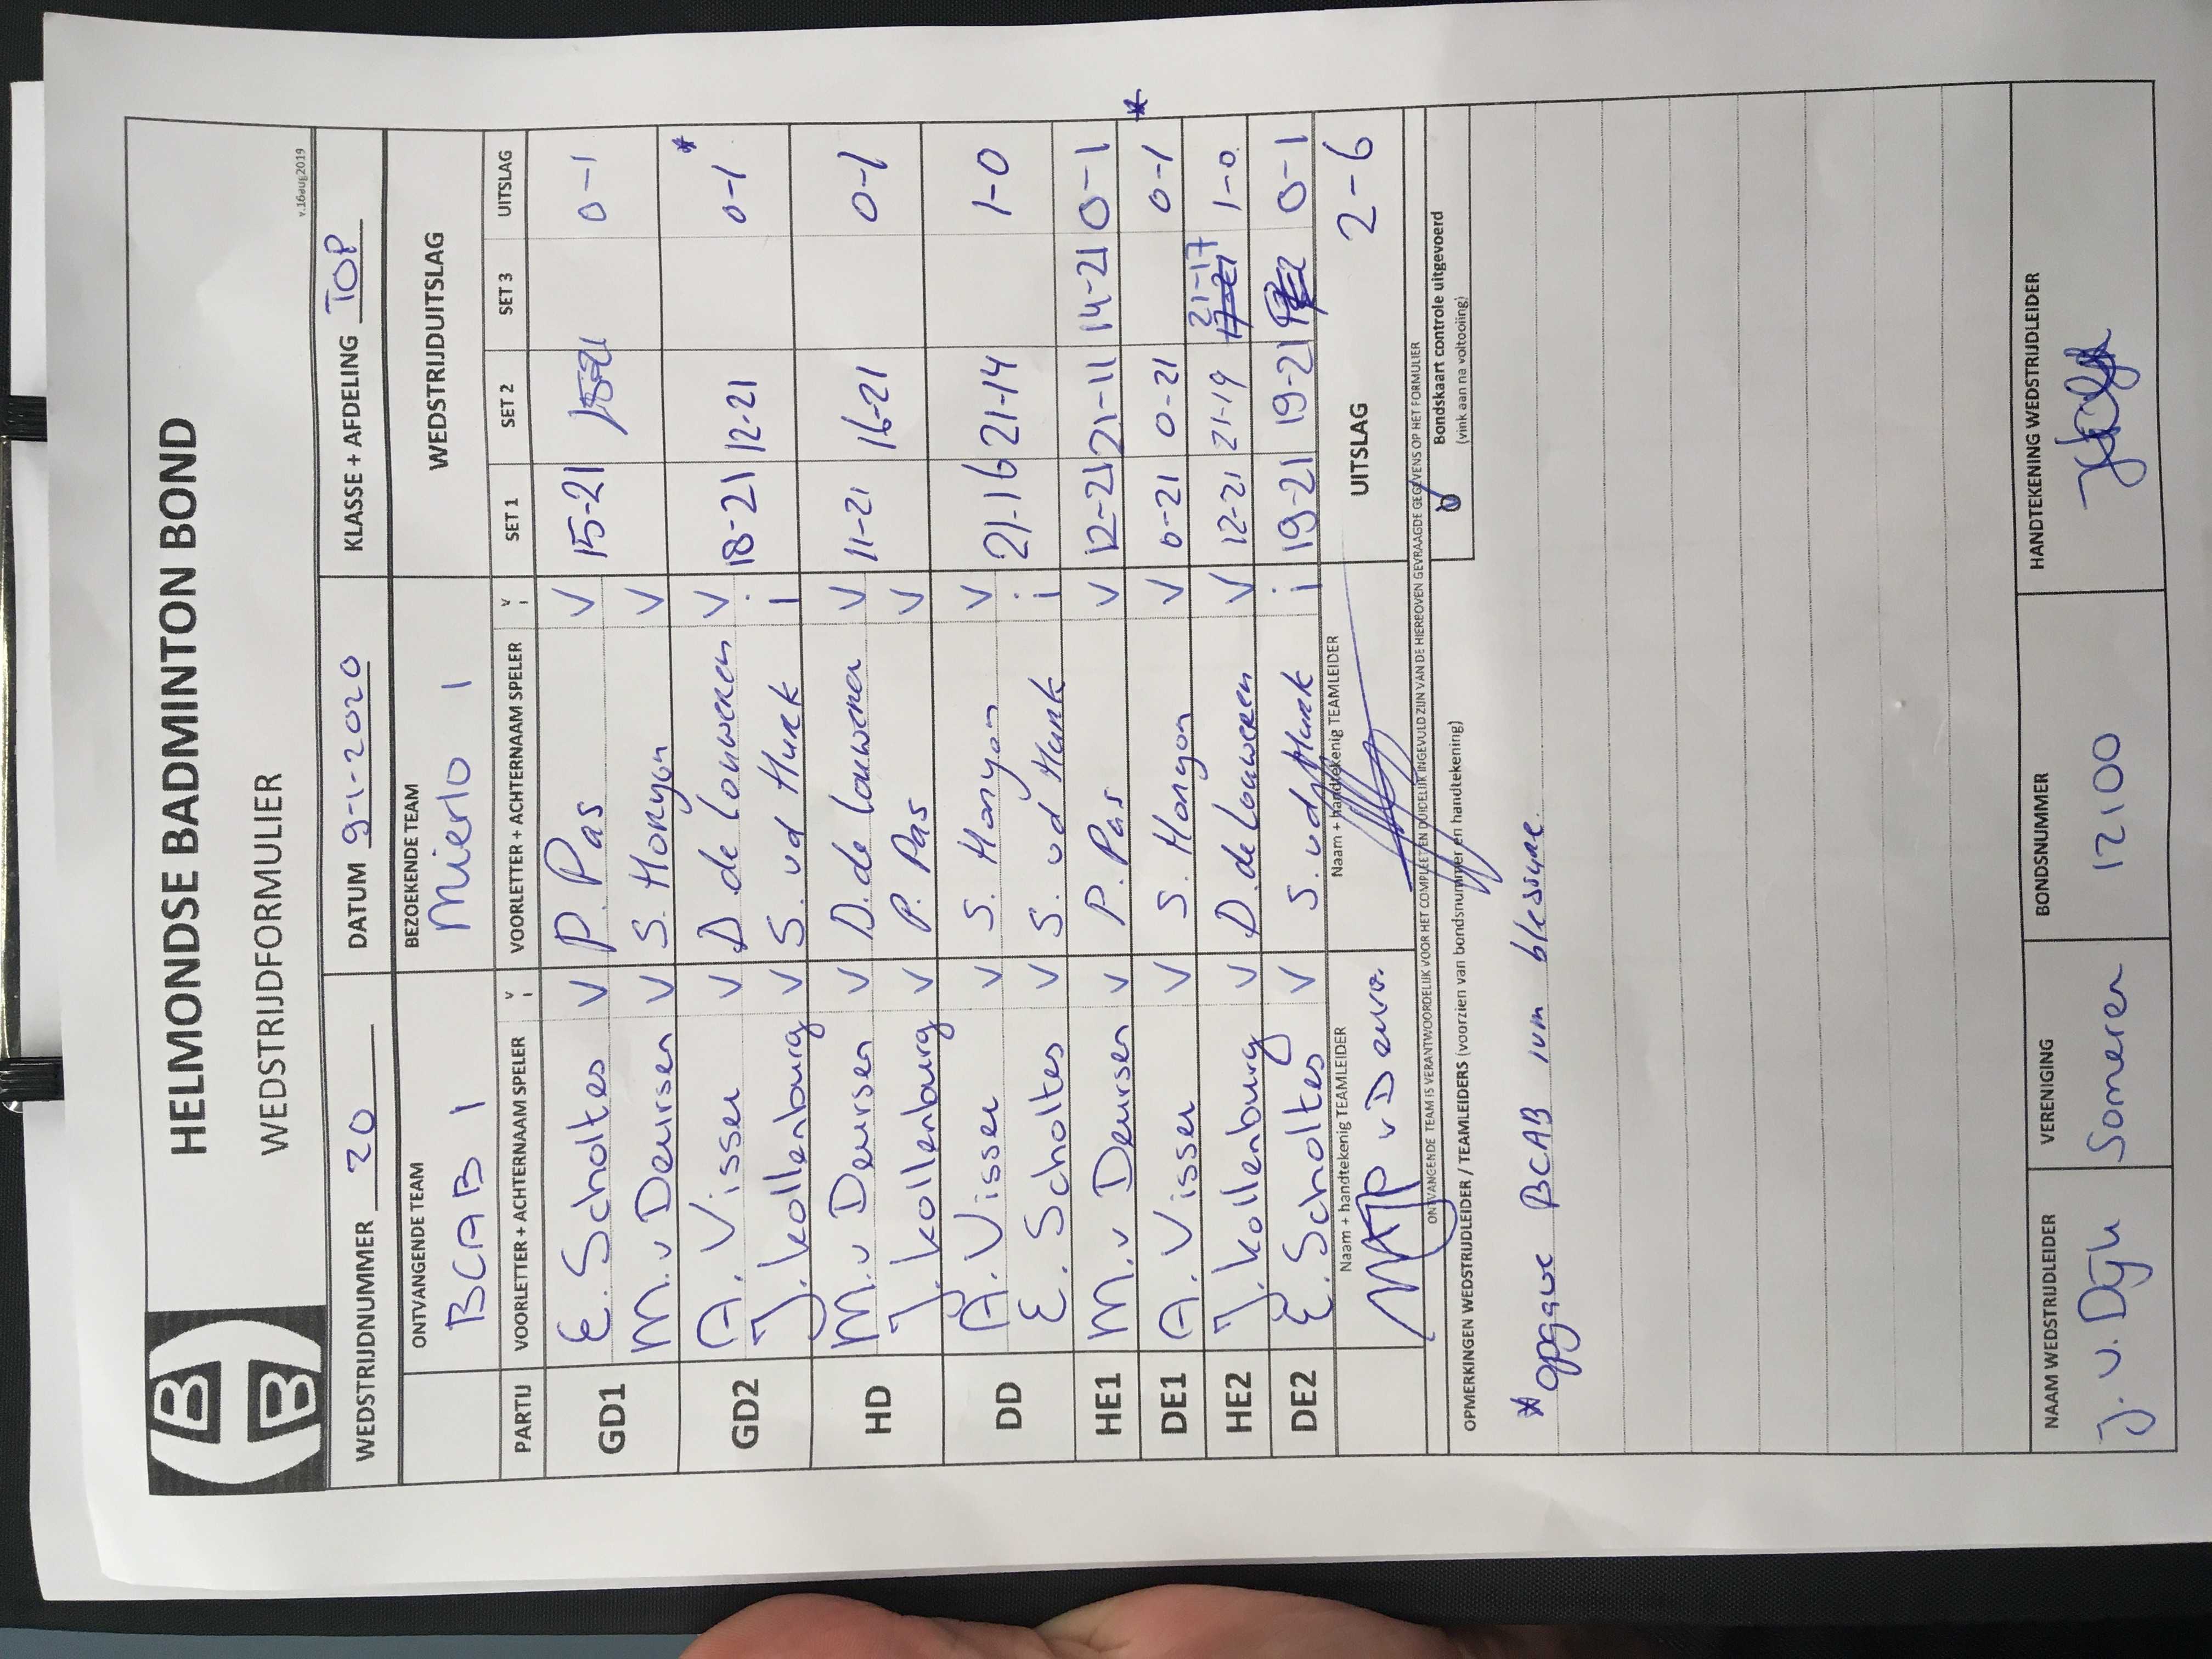 HELMONDSE BADMINTON BOND
WEDSTRIJDFORMULIER
v.16aug2019
WEDSTRIJDNUMMER 20 DATUM 9-1-2020 KLASSE + AFDELING TOP
ONTVANGENDE TEAM BEZOEKENDE TEAM WEDSTRIJDUITSLAG
BCAB 1 Mierlo 1
PARTIJ VOORLETTER + ACHTERNAAM SPELER V i VOORLETTER + ACHTERNAAM SPELER V i SET 1 SET 2 SET 3 UITSLAG
GD1 E. Scholtes V P. Pas V 15-21 0-1
M. v Deursen V S. Honyon V
GD2 A. Visser V D. de Louweren V 18-21 12-21 0-1 *
J. Kollenburg V S. vd Hurk i
HD M. v Deursen V D. de Louweren V 11-21 16-21 0-1
J. Kollenburg V P. Pas V
DD A. Visser V S. Honyon V 21-16 21-14 1-0
E. Scholtes V S. vd Hurk i
HE1 M. v Deursen V P. Pas V 12-21 21-11 14-21 0-1
DE1 A. Visser V S. Hongon V 0-21 0-21 0-1 *
HE2 J. Kollenburg V D. de Louweren V 12-21 21-19 21-17 1-0
DE2 E. Scholtes V S. vd Hurk i 19-21 19-21 0-1
Naam + handtekenig TEAMLEIDER Naam + handtekenig TEAMLEIDER UITSLAG 2-6
ONTVANGENDE TEAM IS VERANTWOORDELIJK VOOR HET COMPLEET EN DUIDELIJK INGEVULD ZIJN VAN DE HIERBOVEN GEVRAAGDE GEGEVENS OP HET FORMULIER
Bondskaart controle uitgevoerd
(vink aan na voltooiing)
OPMERKINGEN WEDSTRIJDLEIDER / TEAMLEIDERS (voorzien van bondsnummer en handtekening)
* opgave BCAB ivm blessure.
NAAM WEDSTRIJDLEIDER VERENIGING BONDSNUMMER HANDTEKENING WEDSTRIJDLEIDER
J. v. Dijk Someren 12100